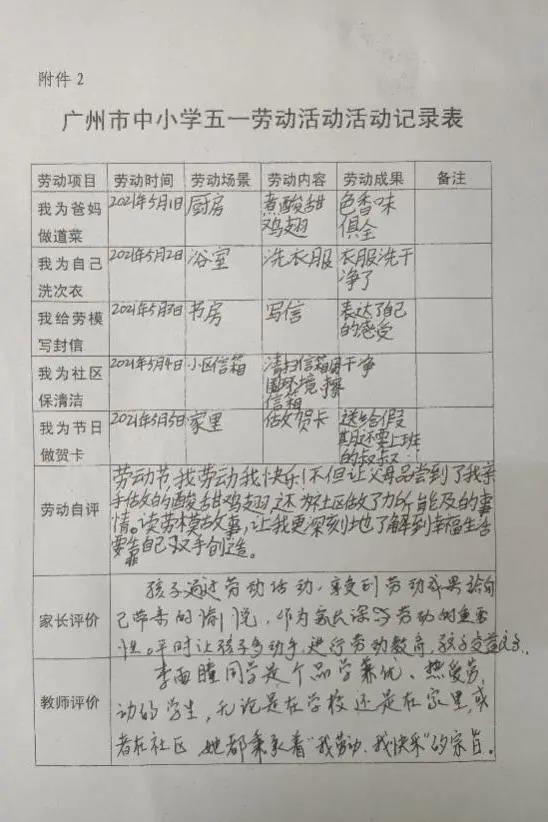 附件2
广州市中小学五一劳动活动活动记录表
劳动项目 劳动时间 劳动场景 劳动内容 劳动成果 备注
我为爸妈 2021年5月1日 厨房 煮酸甜 色香味
做道菜 鸡翅 俱全
我为自己 2021年5月2日 浴室 洗衣服 衣服洗干
洗次衣 净了
我给劳模 2021年5月3日 书房 写信 表达了自己
写封信 的感受
我为社区 2021年5月4日 小区信箱 清扫信箱周 干净
保清洁 围环境,擦
信箱
我为节日 2021年5月5日 家里 做贺卡 送给假
做贺卡 期还要上班
的叔叔
劳动自评
劳动节,我劳动我快乐!不但让父母品尝到了我亲
手做的酸甜鸡翅,还为社区做了力所能及的事
情。读劳模故事,让我更深刻地了解到幸福生活
要靠自己双手创造。
家长评价
孩子通过劳动活动,享受到劳动成果给自
己带来的愉悦,作为家长深感劳动的重要
性。平时让孩子多动手,进行劳动教育,孩子受益
教师评价
李雨瞳同学是个品学兼优、热爱劳
动的学生,无论是在学校还是在家里,或
者在社区 她都秉承着“我劳动、我快乐”的宗旨。